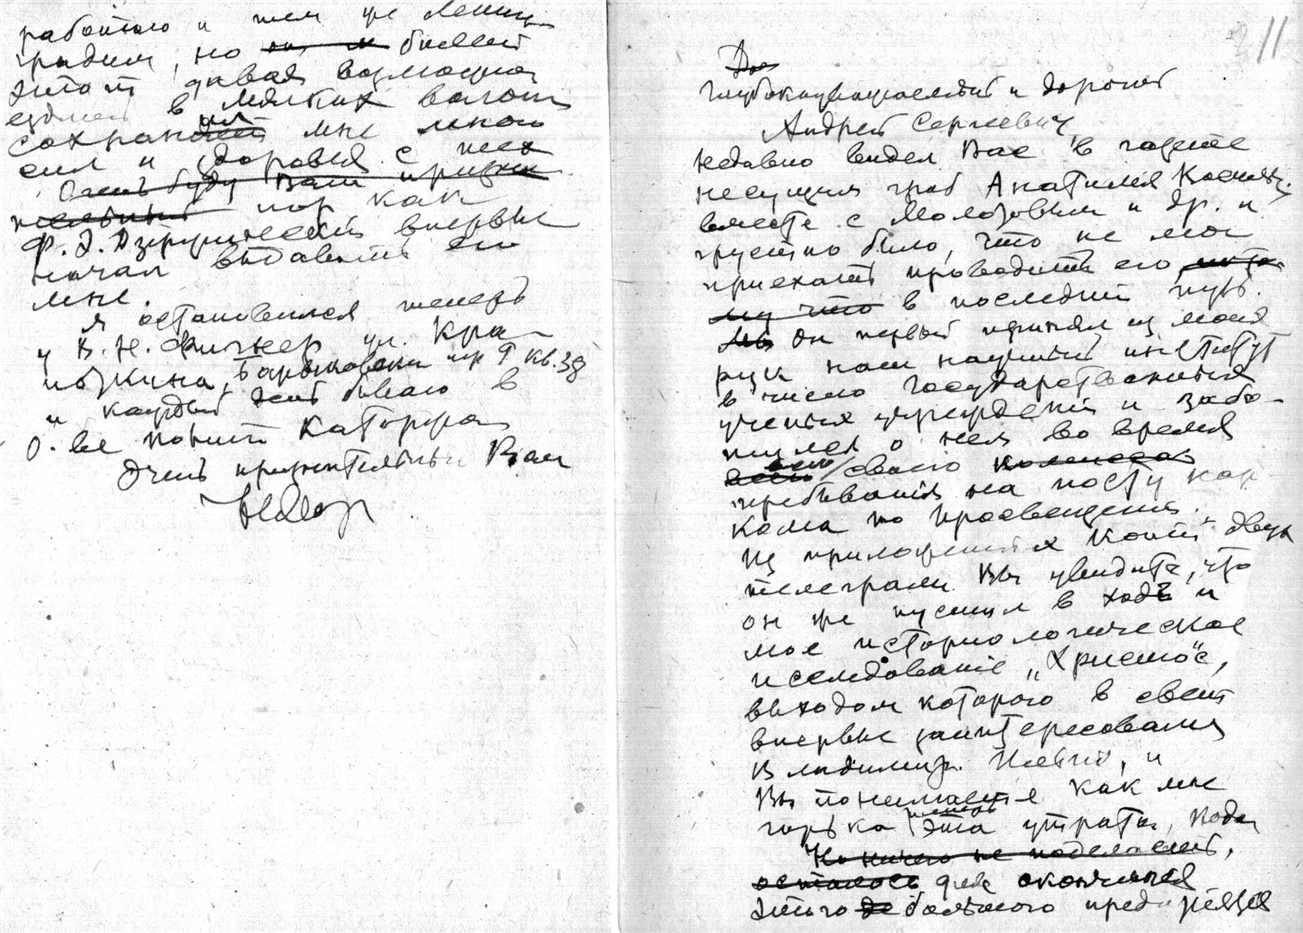 11
Глубокоуважаемый и дорогой
Андрей Сергеевич
Недавно видел Вас в газете
несущим гроб Анатолия
вместе с Молотовым и др. и
грустно было, что не мог
приехать проводить его
в последний путь.
он первый принял из
наш научный институт
в число государственных
ученых учреждений и забо-
о нем во время
всего своего
пребывания на посту нар-
кома по просвещению.
Из приложенных копий двух
телеграмм Вы увидите, что
он же пустил в ходъ и
мое историологическое
исследование „Христос“,
выходом которого в свет
впервые заинтересовался
Владимир Ильич, и
Вы понимаете как мне
горька теперь эта утрата, когда
Но ничего не поделаешь,
осталось для окончания
этого большого предприятия
работаю и тем же Ленин-
градом, но билет
этот давая возможность
ездить в мягких вагонах
сохранял мне много
сил и здоровья с тех
Очень буду Вам
пор как
Ф. Э. Дзержинский впервые
начал выдавать его
мне.
Я остановился теперь
у В. Н. Фигнер ул. Кро-
поткина, кв. 38
и каждый день бываю в
О-ве Каторжан
Очень признательный Вам